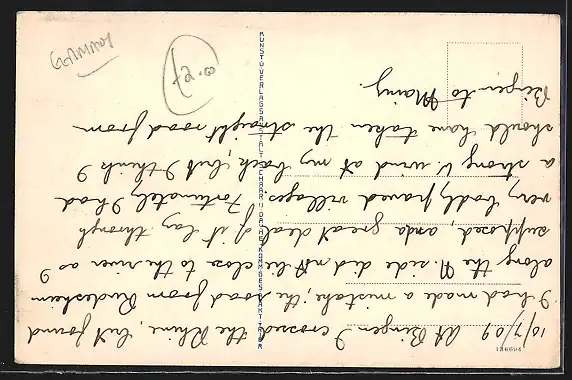 GERMANY
£2.00
10/7/09 At Bingen I crossed the Rhine, but found
I had made a mistake; the road from Rudesheim
along the N. side did not lie close to the river as I
supposed, and a great deal of it lay through
very badly paved villages. Fortunately I had
a strong V. wind at my back, but I think I
should have taken the straight road from
Bingen to Mainz.
136694